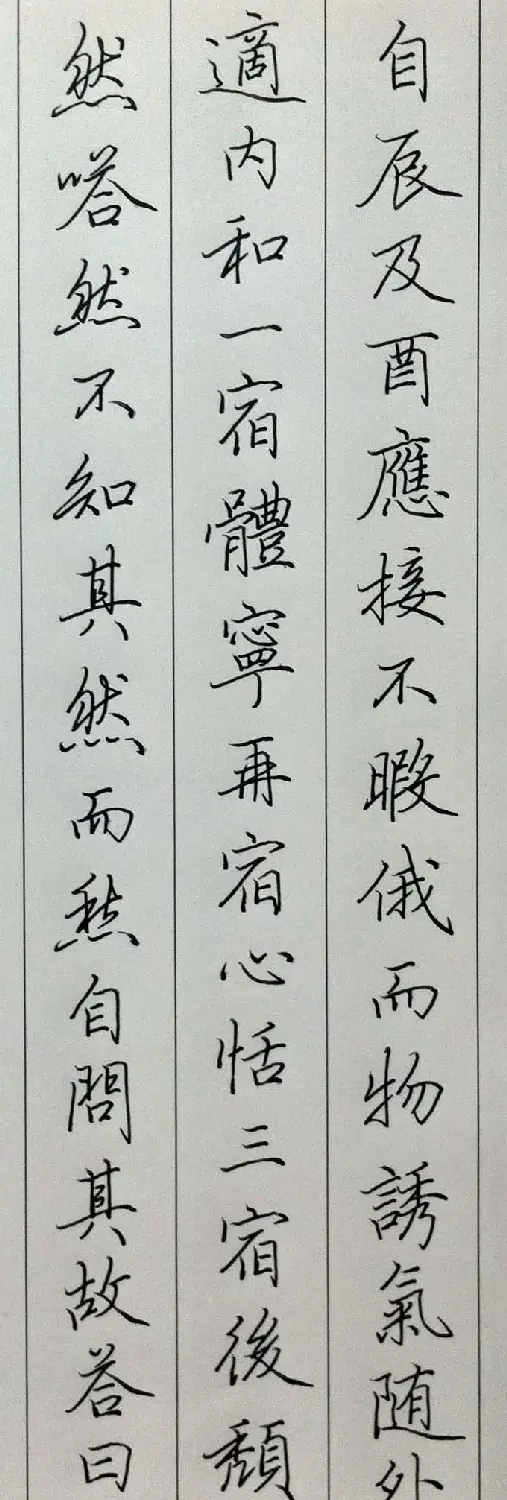 自辰及酉應接不暇俄而物誘氣随外
適内和一宿體寧再宿心恬三宿後頽
然嗒然不知其然而然自問其故答曰